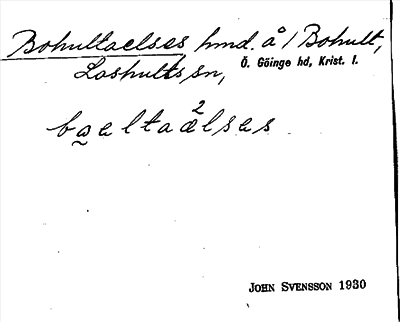 Bohultaelses, hmd. å / Bohult,
Loshults sn, Ö. Göinge hd, Krist. l.
2
baeltaælses
JOHN SVENSSON 1930